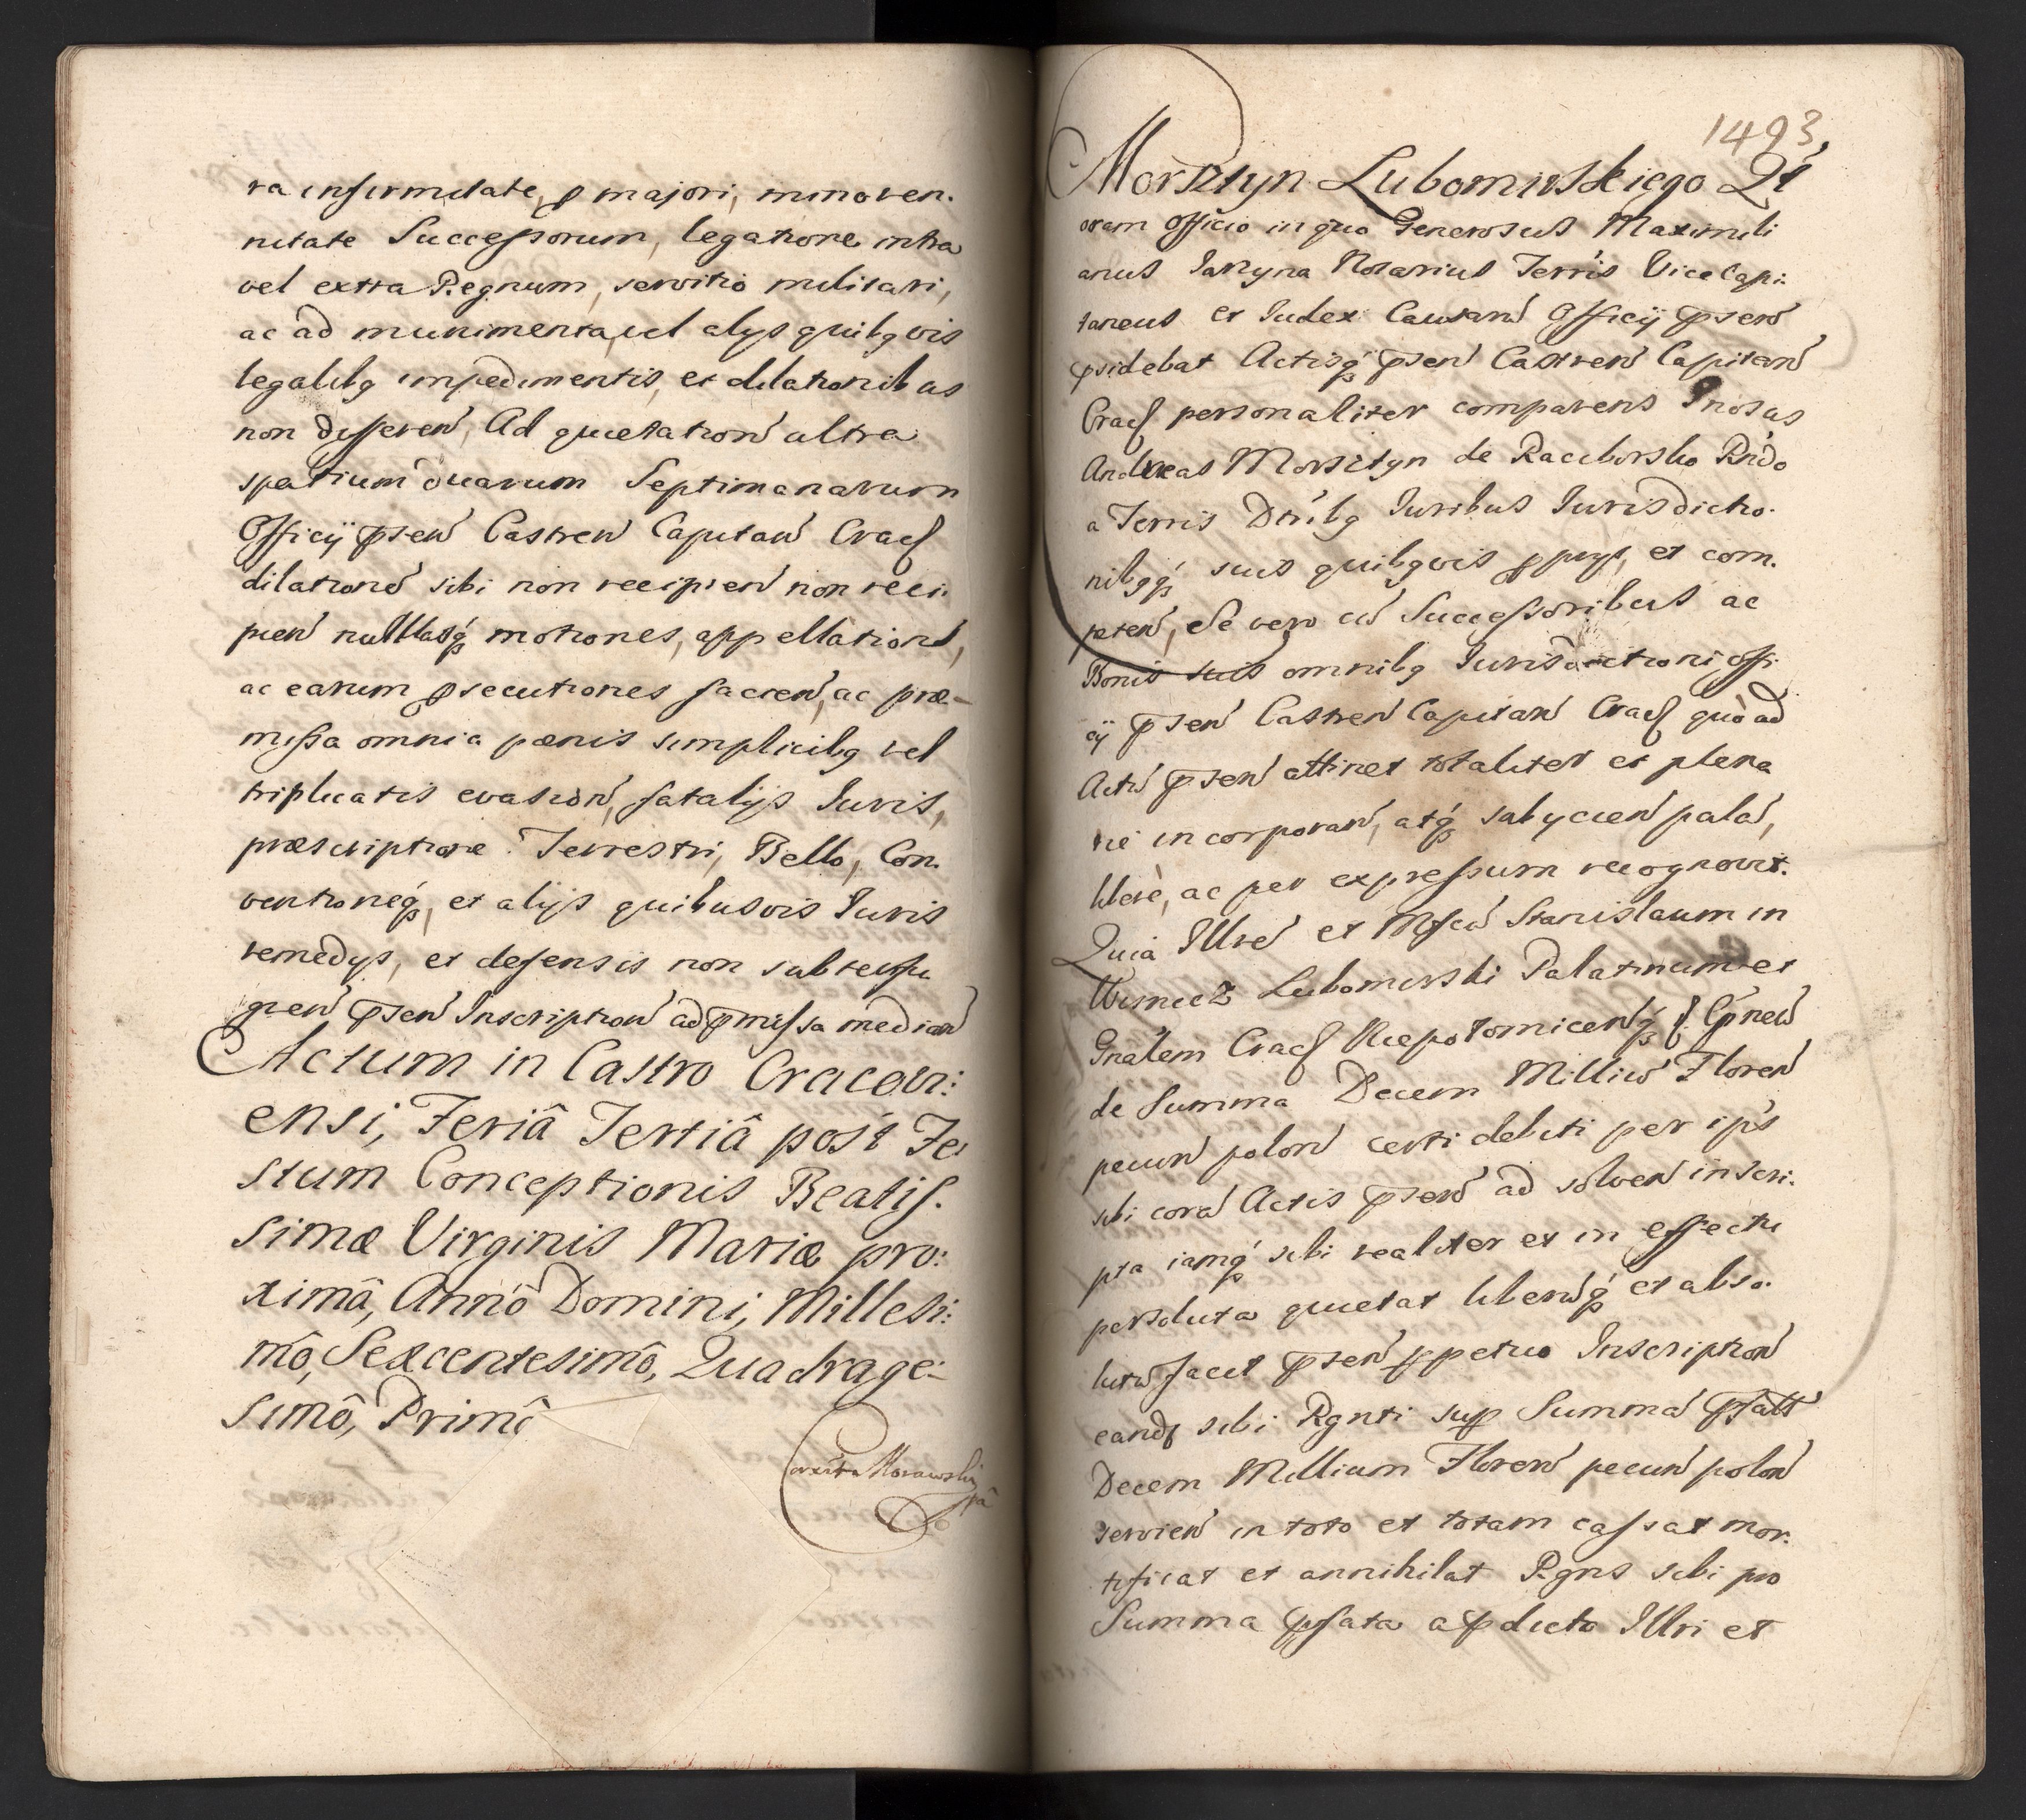 ra infirmitate, p majori, minoren.
nitate Successorum, legatione intra
vel extra Regnum, servitio militari,
ac ad munimenta, vel alys quibq vis
legalibq impedimentis, et dilationibus
non differen, Ad quietation ultra
spatium duarum Septimanarum
Officÿ psen Castren Capitan Cracf
dilationes sibi non recipien non reci.
pien nullasq motiones, appellationes,
ac earum psecutiones facien, ac præ-
missa omnia pœnis simplicibq vel
triplicatis evasion, fatalÿs Iuris,
præscriptione Terrestri, Bello, Con.
ventioneq, et alÿs quibusvis Iuris
remedys, et defensis non subterfu
gien psen Inscription ad pmissa median
Actum in Castro Cracovi:
ensi, Feriâ Tertiâ post Fe
stum Conceptionis Beatis.
simæ Virginis Mariæ pro:
ximâ, Annô Domini, Millesi:
mô, Sexcentesimô, Quadrage:
simô, Primô
Morawski
1493
Morsztyn Lubomirskiego Qt
oram Officio in quo Generosus Maximili
anus Iarzyna Notarius Terris Vice Capi:
taneus et Iudex Causarum Officÿ psen
psidebat Actisq psen Castren Capitan
Cracf personaliter comparens Gnosus
Andreas Morsztyn de Raciborsko Rndo
a Terris Dtribq Iuribus Iurisdictio.
nibqq suis quibqvis pprys, et com.
peten, Se vero cu Successoribus ac
Bonis suis omnibq Iurisdictioni Offi
cÿ psen Castren Capitan Cracf quò ad
Actu psen attinet totaliter et plena
rie incorporan, atq subycien pala,
libere, ac per expressum recognovit.
Quia Illre et Mfcu Stanislaum in
Wisnicz Lubomirski Palatinum et
Gnalem Cracf Niepolomicenq &
de Summa Decem Milliu Floren
pecun polon certi debiti per ips
sibi cora Actis psen ad solven inscri.
pta iamq sibi realiter et in effectu
persoluta quietat liberuq et abso.
lutu facit psen ppetuo Inscription
eandf sibi Rgnti sup Summa pfatt
Decem Millium Floren pecun polon
servien in toto et totam cassat mor.
tificat et annihilat Rgns sibi pro
Summa pfata a pdicto Illri et